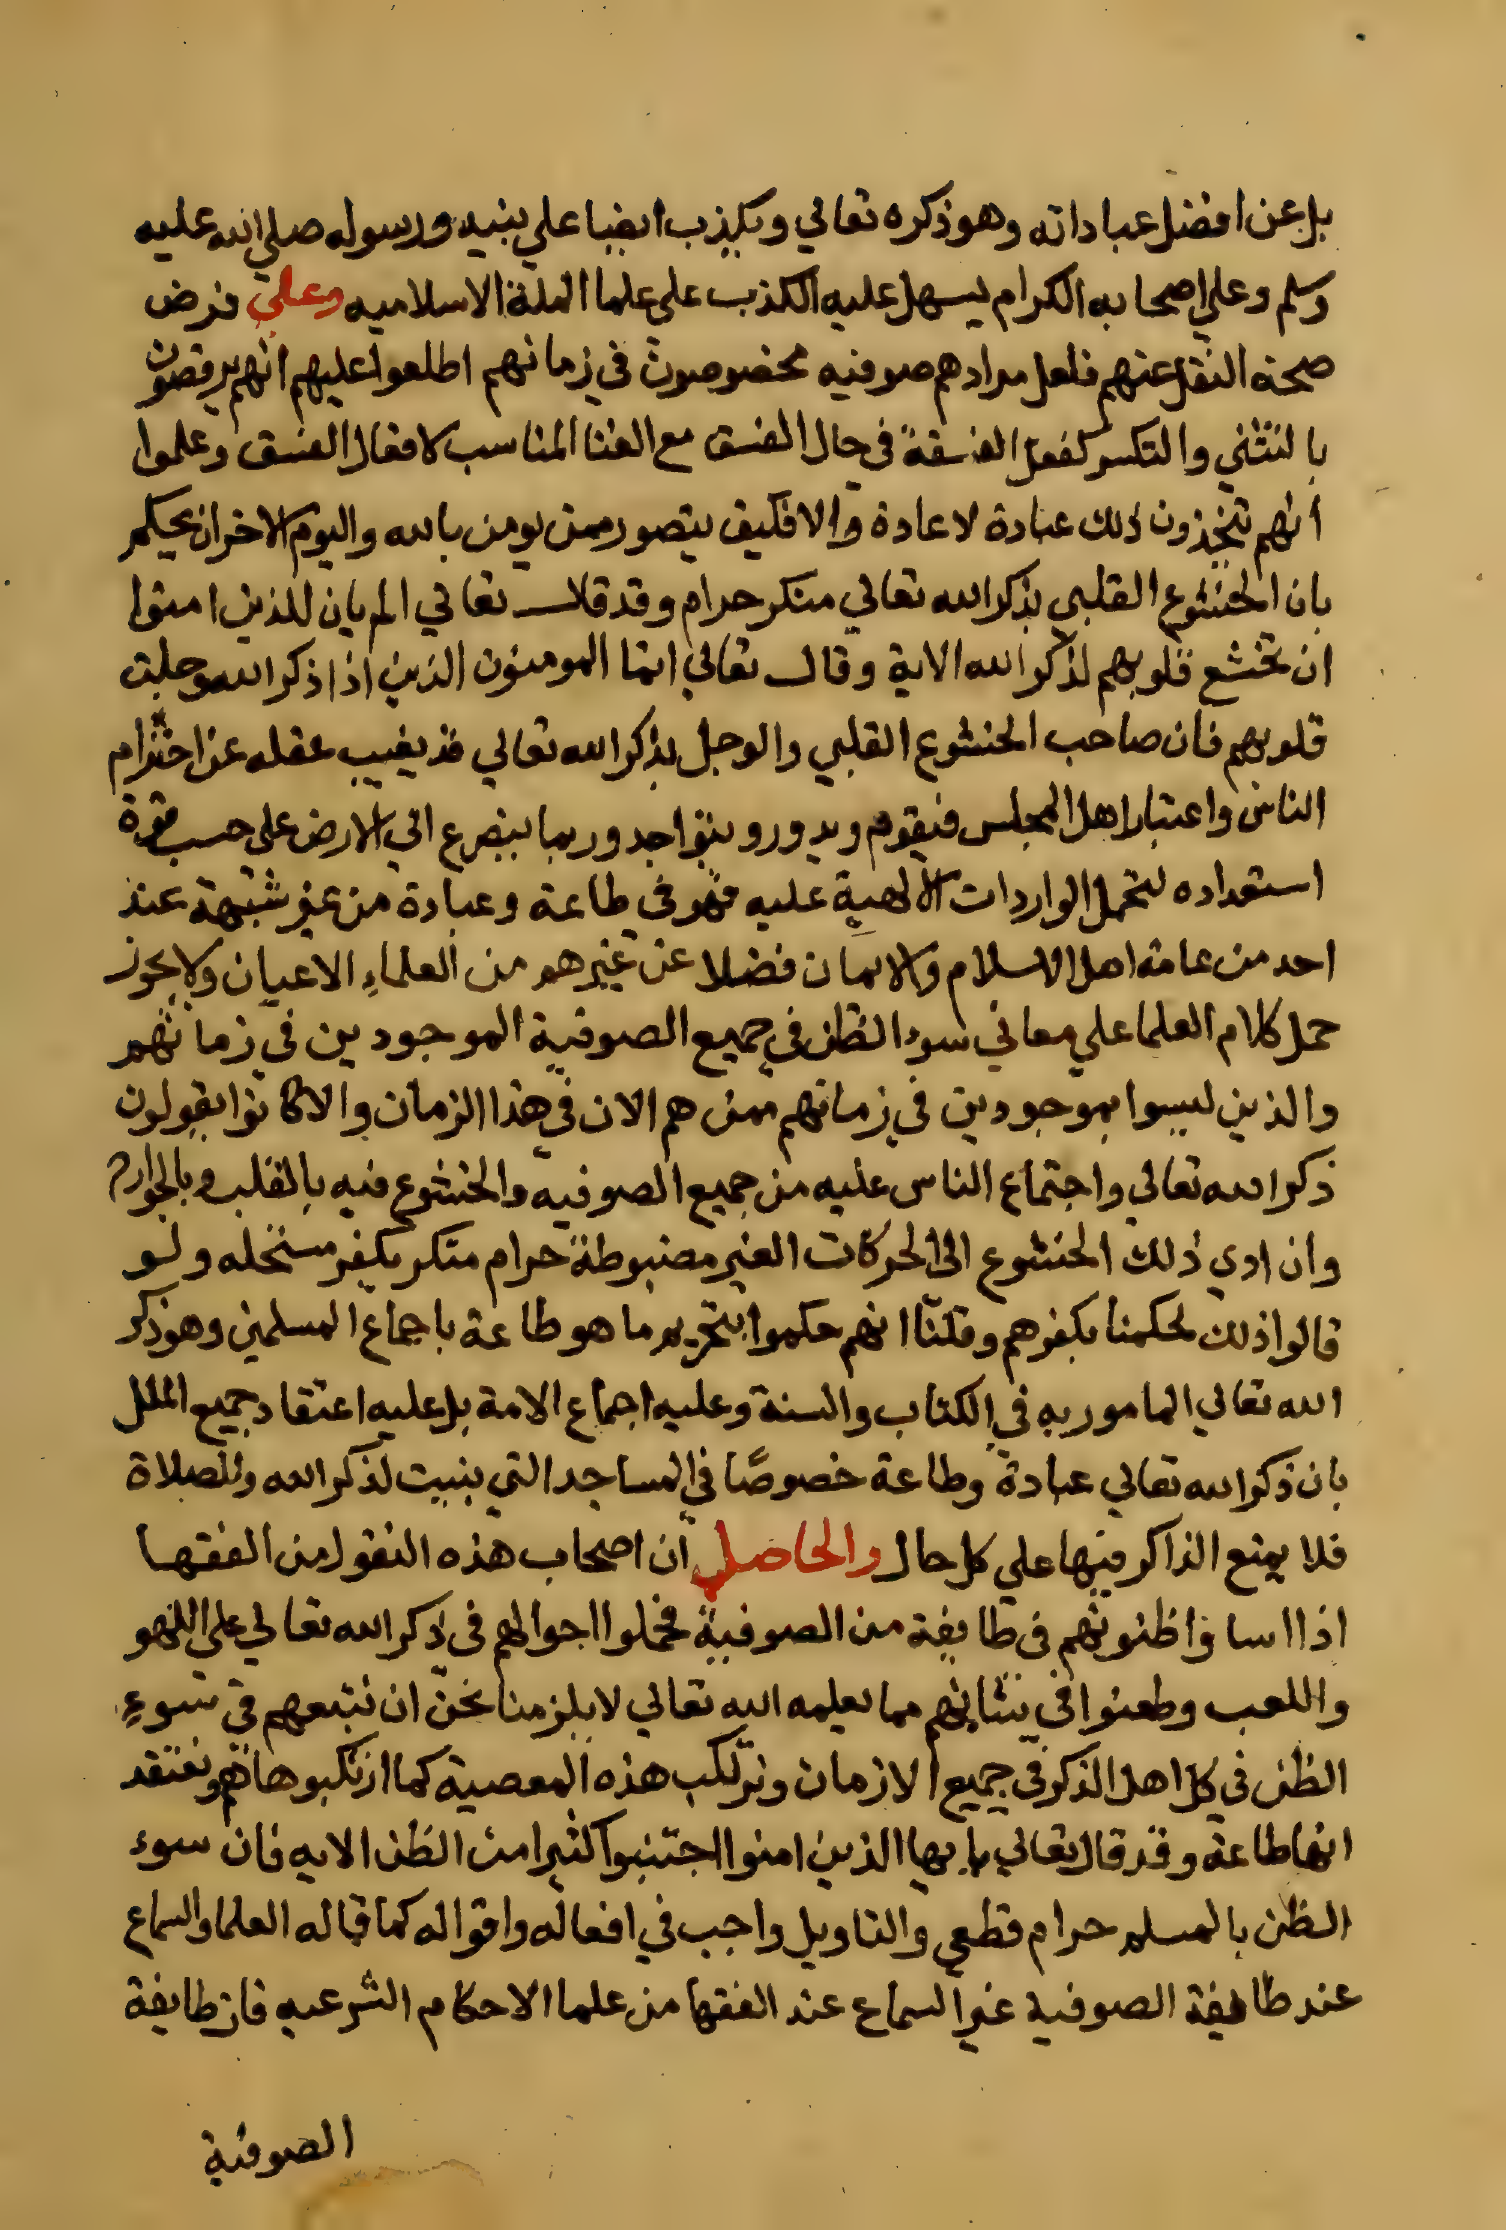 بل عن افضل عباداته وهو ذكره تعالي ويكذب ايضا علي نبيه ورسوله صلي الله عليه
وسلم وعلي اصحابه الكرام يسهل عليه الكذب علي علما الملة الاسلاميه وعلي فرض
صحة النقل عنهم فلعل مرادهم صوفيه مخصوصون في زمانهم اطلعوا عليهم انهم يرقصون
بالتثني والتكسر كفعل الفسقة في حال الفسق مع الغنا المناسب لافعال الفسق وعلموا
انهم يتخذون ذلك عبادة لا عادة والا فكيف يتصور ممن يومن بالله واليوم الاخر ان يحكم
بان الخشوع القلبي بذكر الله تعالي منكر حرام وقد قال تعالي الم يان للذين امنوا
ان تخشع قلوبهم لذكر الله الاية وقال تعالي انما المومنون الذين اذا ذكر الله وجلت
قلوبهم فان صاحب الخشوع القلبي والوجل بذكر الله تعالي قد يغيب عقله عن احترام
الناس واعتبار اهل المجلس فيقوم ويدور ويتواجد وربما ينصرع الي الارض علي حسب قوة
استعداده لتحمل الواردات الالهية عليه فهو في طاعة وعبادة من غير شبهة عند
احد من عامة اهل الاسلام والايمان فضلا عن غيرهم من العلماءِ الاعيان ولا يجوز
حمل كلام العلما علي معاني سوء الظن في جميع الصوفية الموجودين في زمانهم
والذين ليسوا بموجودين في زمانهم ممن هم الان في هذا الزمان والا كانوا يقولون
ذكر الله تعالي واجتماع الناس عليه من جميع الصوفيه والخشوع فيه بالقلب وبالجوارح
وان ادي ذلك الخشوع الي الحركات الغير مضبوطة حرام منكر يكفر مستحله ولو
قالوا ذلك لحكمنا بكفرهم وقلنا انهم حكموا بتحريم ما هو طاعة باجماع المسلمين وهو ذكر
الله تعالي المامور به في الكتاب والسنة وعليه اجماع الامة بل عليه اعتقاد جميع الملل
بان ذكر الله تعالي عبادة وطاعة خصوصًا في المساجد التي بنيت لذكر الله وللصلاة
فلا يمنع الذاكر فيها علي كل حال والحاصل ان اصحاب هذه النقول من الفقها
اذا اساؤا ظنونهم في طايفة من الصوفية فحملوا احوالهم في ذكر الله تعالي علي اللهو
واللعب وطعنوا في نياتهم مما يعلمه الله تعالي لا يلزمنا نحن ان نتبعهم في سوءِ
الظن في كل اهل الذكر في جميع الازمان ونرتكب هذه المعصية كما ارتكبوها هم ونعتقد
انها طاعة وقد قال تعالي يا ايها الذين امنوا اجتنبوا كثيرا من الظن الايه فان سوء
الظن بالمسلم حرام قطعي والتاويل واجب في افعاله واقواله كما قاله العلما والسماع
عند طايفة الصوفية غير السماع عند الفقها من علما الاحكام الشرعيه فان طايفة
الصوفية